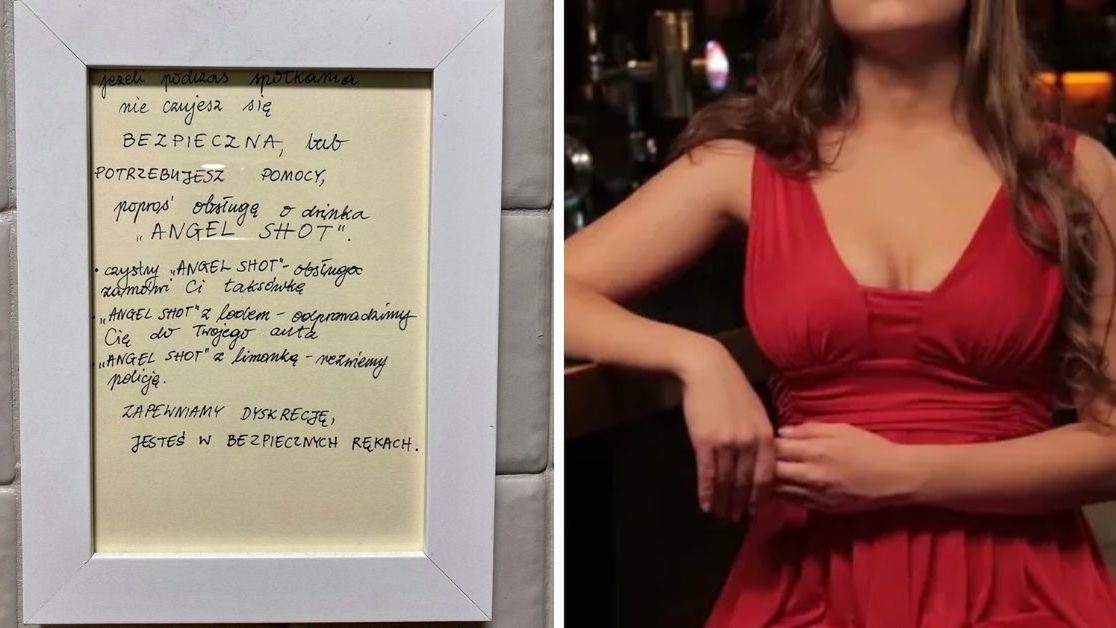 jeżeli podczas spotkania
nie czujesz się
BEZPIECZNA, lub
POTRZEBUJESZ POMOCY,
poproś obsługę o drinka
„ANGEL SHOT".
• czysty „ANGEL SHOT" - obsługa
zamówi Ci taksówkę
• „ANGEL SHOT" z lodem - odprowadzimy
Cię do Twojego auta
• „ANGEL SHOT" z limonką - wezwiemy
policję.
ZAPEWNIAMY DYSKRECJĘ,
JESTEŚ W BEZPIECZNYCH RĘKACH.